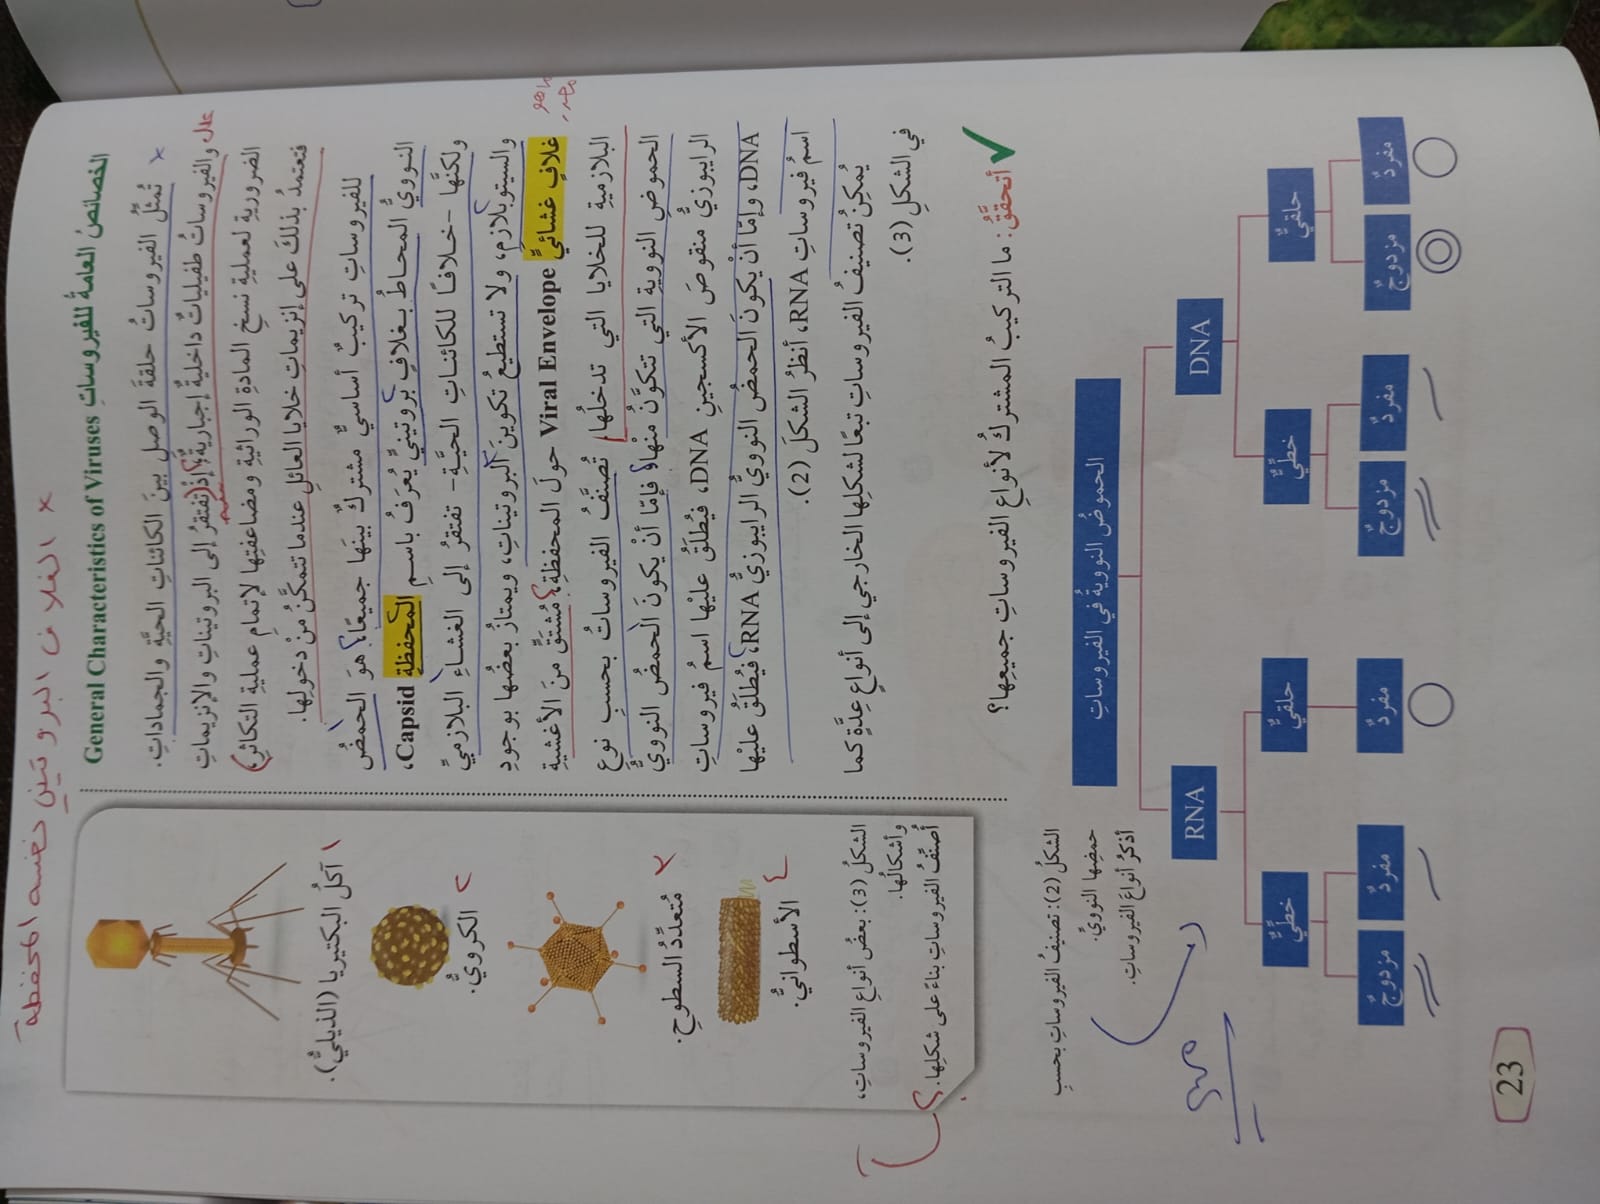 × الغلاف البروتيني نفسه المحفظة
الخصائصُ العامةُ للفيروساتِ General Characteristics of Viruses
× تُمثِّلُ الفيروساتُ حلقةَ الوصلِ بينَ الكائناتِ الحيَّةِ والجماداتِ.
علل والفيروساتُ طفيلياتٌ داخليةٌ إجباريةٌ؛ إذْ تفتقرُ إلى البروتيناتِ والإنزيماتِ
الضروريةِ لعمليةِ نسخِ المادةِ الوراثيةِ ومضاعفتِها لإتمامِ عمليةِ التكاثرِ،
فتعتمدُ بذلكَ على إنزيماتِ خلايا العائلِ عندما تتمكَّنُ منْ دخولِها.
للفيروساتِ تركيبٌ أساسيٌّ مشتركٌ بينَها جميعًا؛ هوَ الحمضُ
النوويُّ المحاطُ بغلافٍ بروتينيٍّ يُعرَفُ باسمِ المحفظةِ Capsid،
ولكنَّها -خلافًا للكائناتِ الحيَّةِ- تفتقرُ إلى الغشاءِ البلازميِّ
والسيتوبلازمِ، ولا تستطيعُ تكوينَ البروتيناتِ، ويمتازُ بعضُها بوجودِ
غلافٍ غشائيٍّ Viral Envelope حولَ المحفظةِ؛ مُشتَقٍّ منَ الأغشيةِ
البلازميةِ للخلايا التي تدخلُها. تُصنَّفُ الفيروساتُ بحسبِ نوعِ
الحموضِ النوويةِ التي تتكوَّنُ منْها؛ فإمّا أنْ يكونَ الحمضُ النوويُّ
الرايبوزيُّ منقوصَ الأكسجينِ DNA، فيُطلَقُ عليْها اسمُ فيروساتِ
DNA، وإمّا أنْ يكونَ الحمضُ النوويُّ الرايبوزيُّ RNA، فيُطلَقُ عليْها
اسمُ فيروساتِ RNA، أنظرُ الشكلَ (2).
يُمكِنُ تصنيفُ الفيروساتِ تبعًا لشكلِها الخارجيِّ إلى أنواعٍ عِدَّةٍ كما
في الشكلِ (3).
✓ أتحقَّقُ: ما التركيبُ المشتركُ لأنواعِ الفيروساتِ جميعِها؟
١ آكلُ البكتيريا (الذيليُّ).
٢ الكرويُّ.
٣ مُتعدِّدُ السطوحِ.
٤ الأسطوانيُّ.
الشكلُ (3): بعضُ أنواعِ الفيروساتِ،
وأشكالُها.
أُصنِّفُ الفيروساتِ بناءً على شكلِها.
الشكلُ (2): تصنيفُ الفيروساتِ بحسبِ
حمضِها النوويِّ.
أذكرُ أنواعَ الفيروساتِ.
الحموضُ النوويةُ في الفيروساتِ
DNA
RNA
حلقيٌّ
خطِّيٌّ
حلقيٌّ
خطِّيٌّ
مفردٌ
مزدوجٌ
مفردٌ
مزدوجٌ
مفردٌ
مفردٌ
مزدوجٌ
23